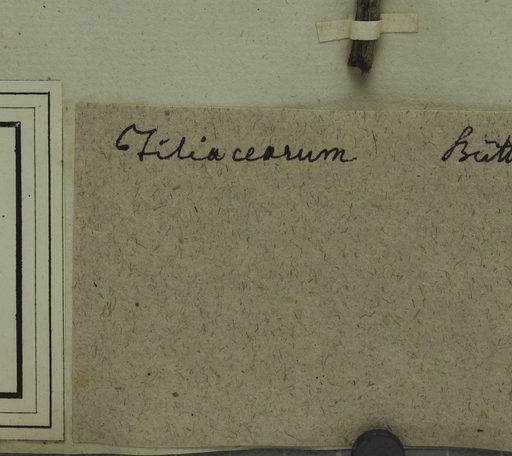 Tiliacearum Bütt